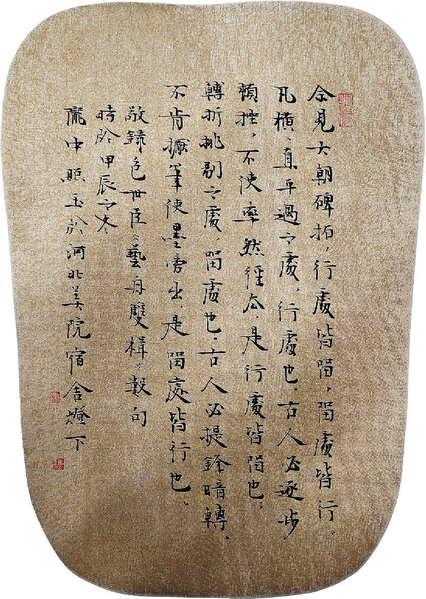 余見六朝碑拓，行處皆留，留處皆行。
凡橫、直平過之處，行處也，古人必逐步
頓挫，不使率然徑去，是行處皆留也；
轉折挑剔之處，留處也，古人必提鋒暗轉，
不肯擫筆使墨旁出，是留處皆行也。
敬錄包世臣《藝舟雙楫》數句
時於甲辰之冬
龐中照玉於河北美院宿舍燈下